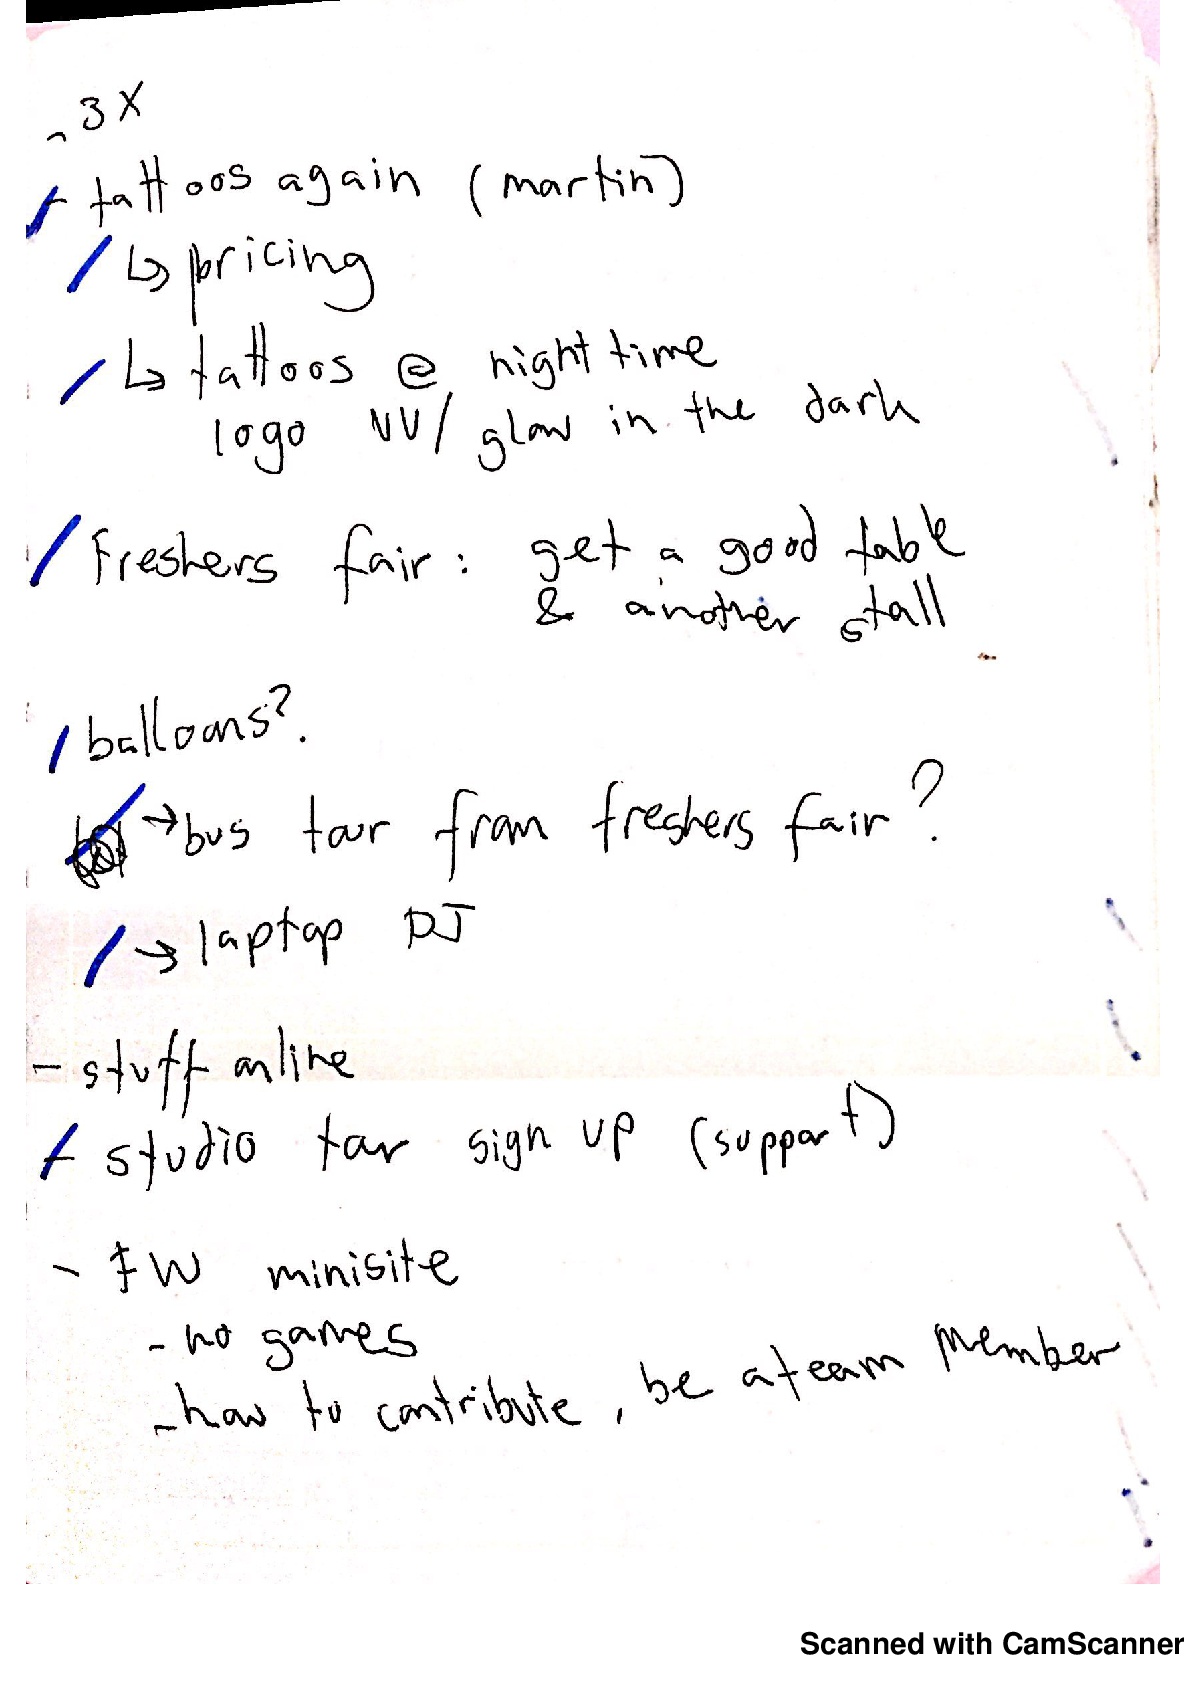 - 3X
- tattoos again (martin)
↳ pricing
↳ tattoos @ night time
logo UV/ glow in the dark
Freshers fair: get a good table
& another stall
balloons?.
→ bus tour from freshers fair?
→ laptop DJ
- stuff online
- studio tour sign up (support)
- FW minisite
- no games
- how to contribute, be a team member
Scanned with CamScanner